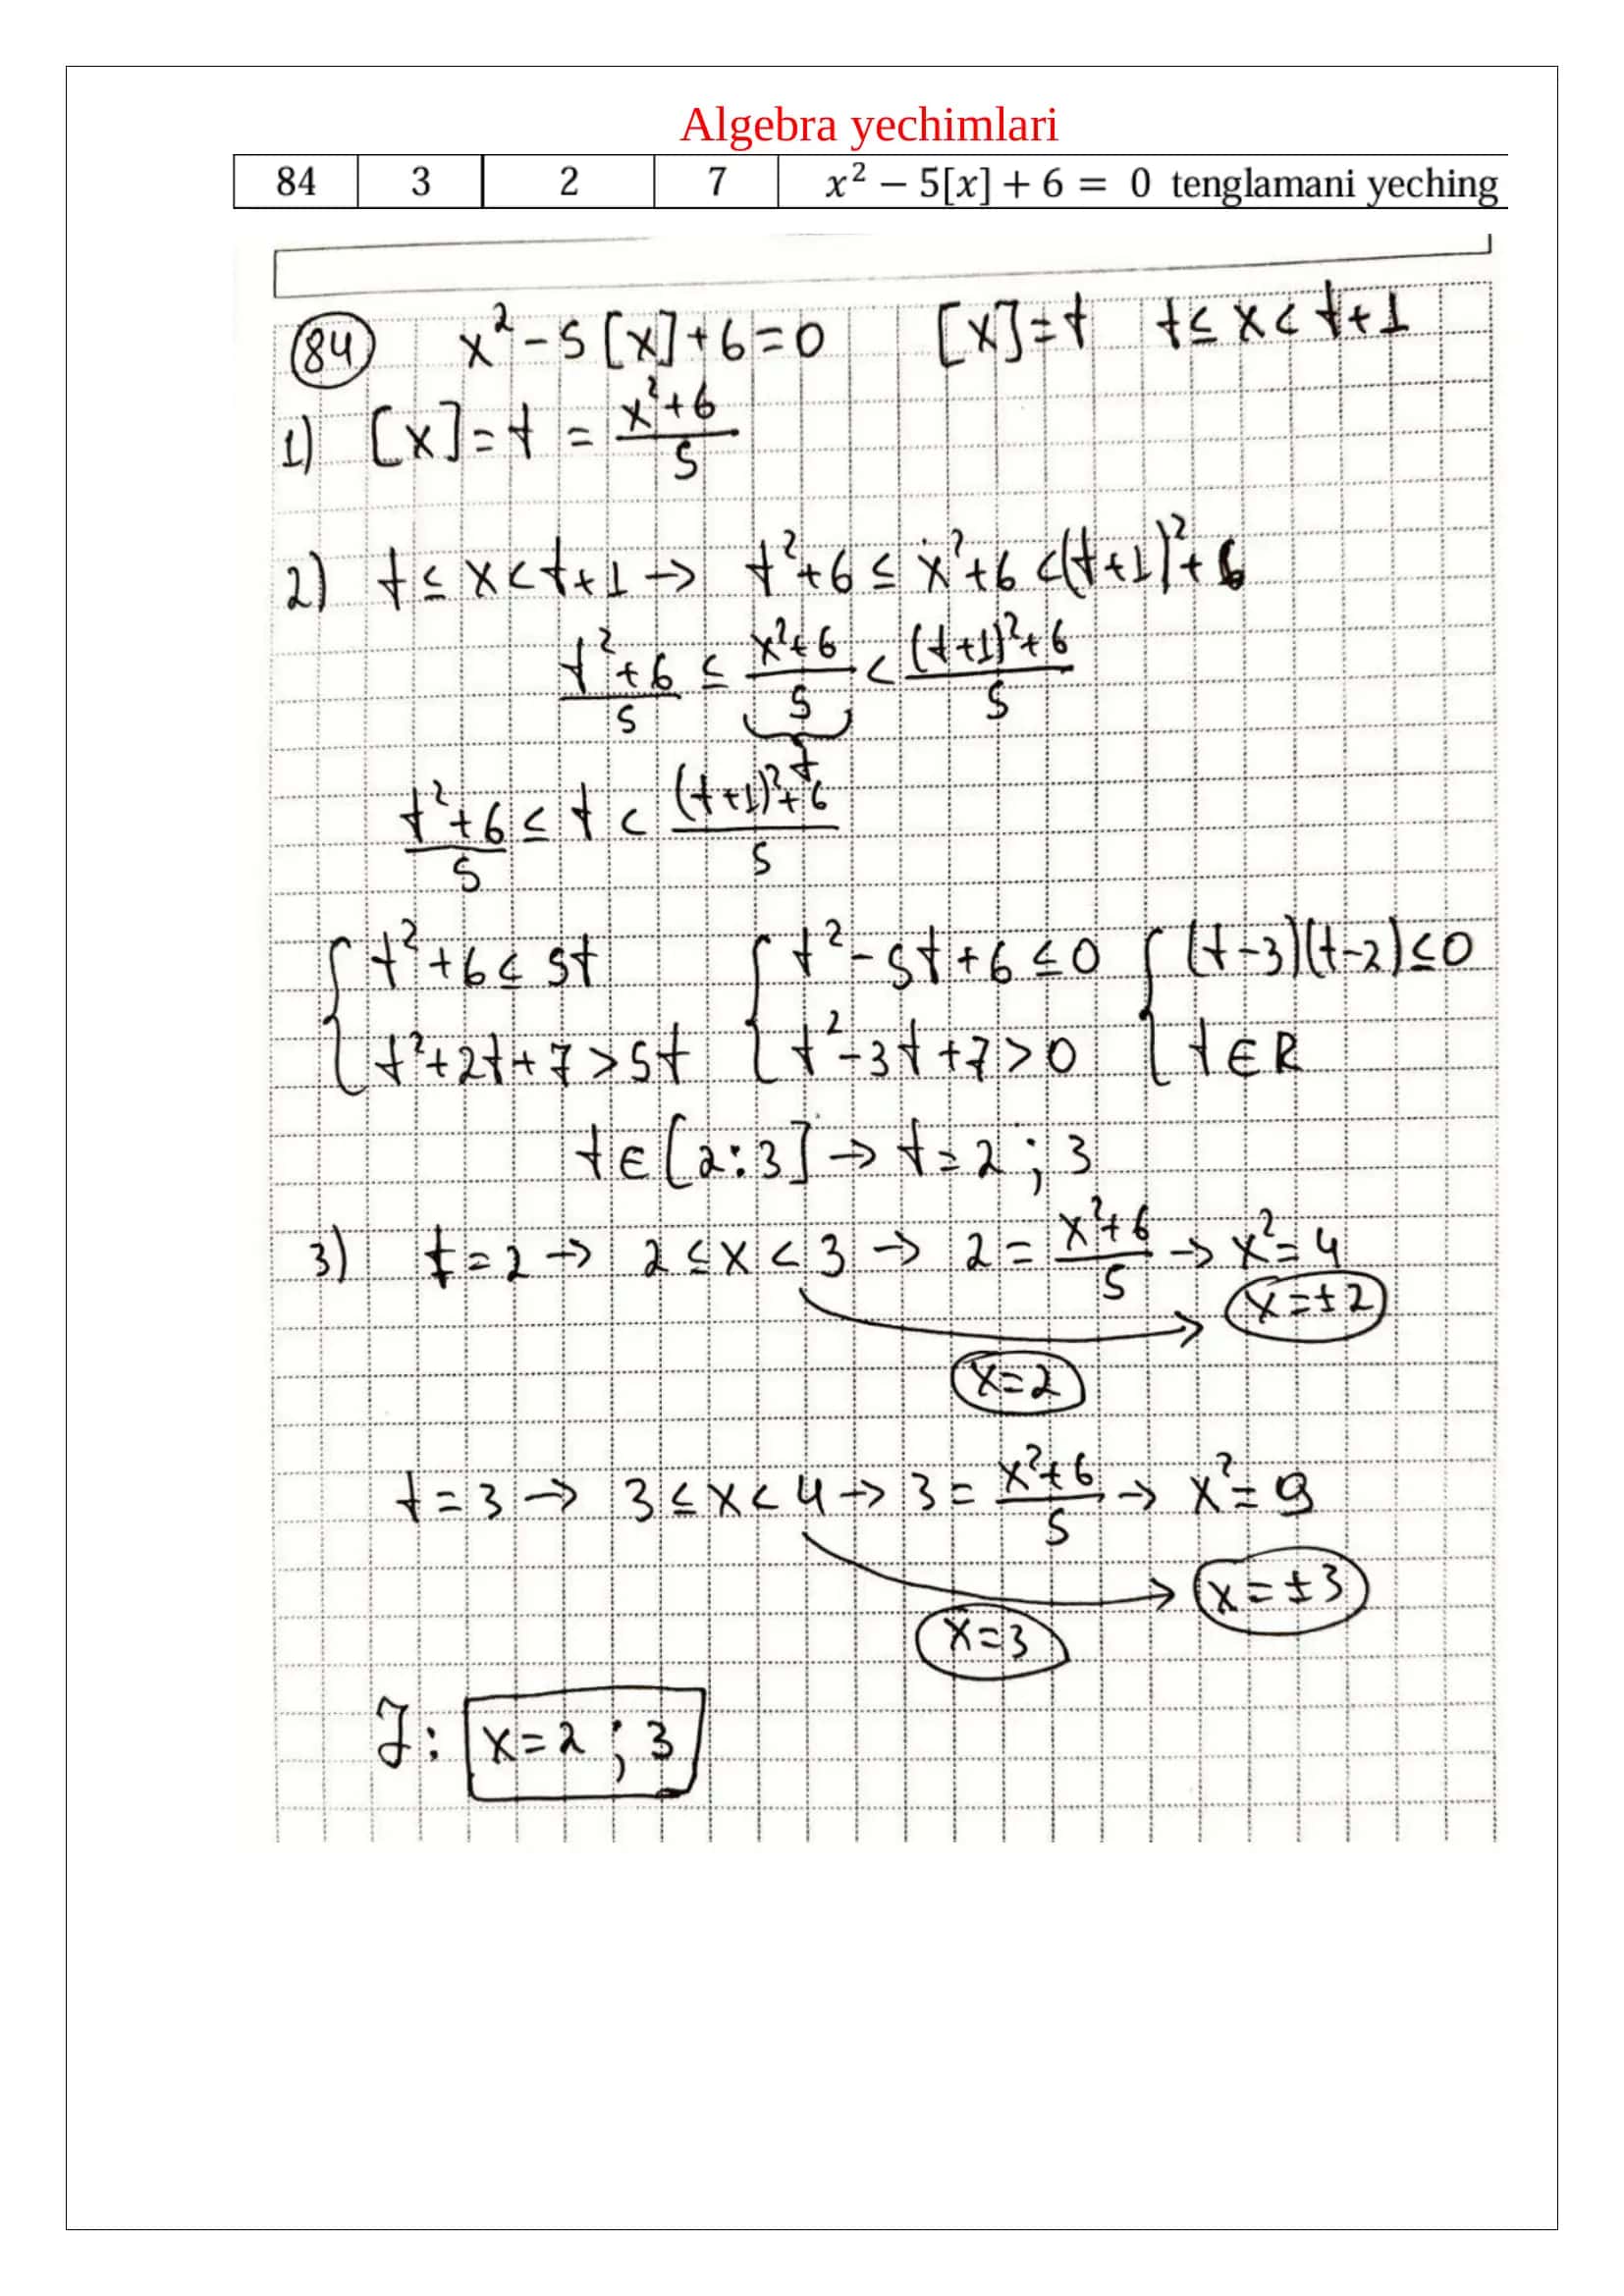 Algebra yechimlari
84 3 2 7 x² − 5[x] + 6 = 0 tenglamani yeching
84 x² - 5[x] + 6 = 0 [x] = t t ≤ x < t+1
1) [x] = t = (x²+6)/5
2) t ≤ x < t+1 → t²+6 ≤ x²+6 < (t+1)²+6
(t²+6)/5 ≤ (x²+6)/5 < ((t+1)²+6)/5
t
(t²+6)/5 ≤ t < ((t+1)²+6)/5
{ t²+6 ≤ 5t { t²-5t+6 ≤ 0 { (t-3)(t-2) ≤ 0
t²+2t+7 > 5t t²-3t+7 > 0 t ∈ R
t ∈ [2:3] → t = 2 ; 3
3) t = 2 → 2 ≤ x < 3 → 2 = (x²+6)/5 → x² = 4
x = ±2
x = 2
t = 3 → 3 ≤ x < 4 → 3 = (x²+6)/5 → x² = 9
x = ±3
x = 3
J: x = 2 ; 3